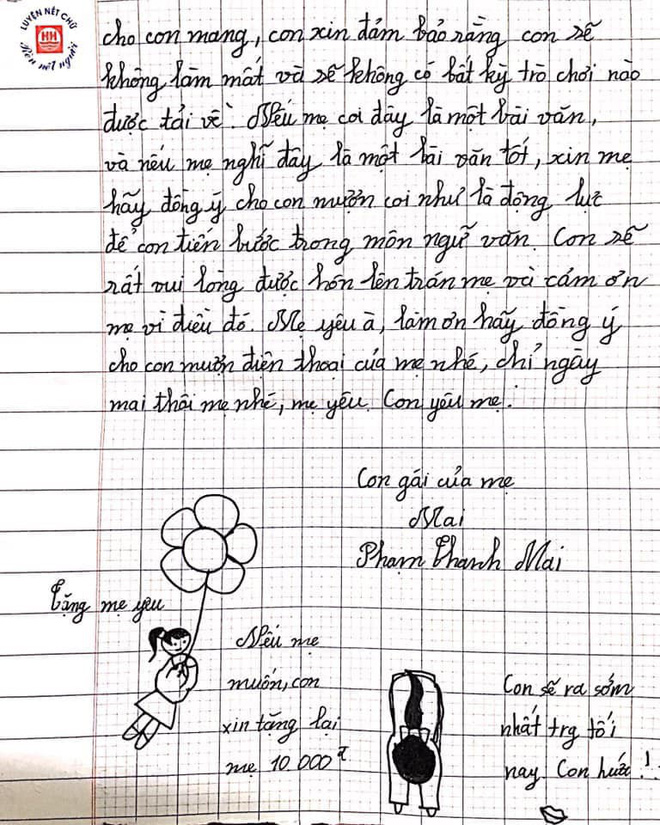 LUYỆN NÉT CHỮ
HH
Rèn nét người
cho con mang, con xin đảm bảo rằng con sẽ
không làm mất và sẽ không có bất kỳ trò chơi nào
được tải về. Nếu mẹ coi đây là một bài văn,
và nếu mẹ nghĩ đây là một bài văn tốt, xin mẹ
hãy đồng ý cho con mượn coi như là động lực
để con tiến bước trong môn ngữ văn. Con sẽ
rất vui lòng được hôn lên trán mẹ và cảm ơn
mẹ vì điều đó. Mẹ yêu à, làm ơn hãy đồng ý
cho con mượn điện thoại của mẹ nhé, chỉ ngày
mai thôi mẹ nhé, mẹ yêu. Con yêu mẹ.
Con gái của mẹ
Mai
Phạm Thanh Mai
Tặng mẹ yêu
Nếu mẹ
muốn, con
xin tặng lại
mẹ 10.000đ
Con sẽ ra sớm
nhất trg tối
nay. Con hứa!